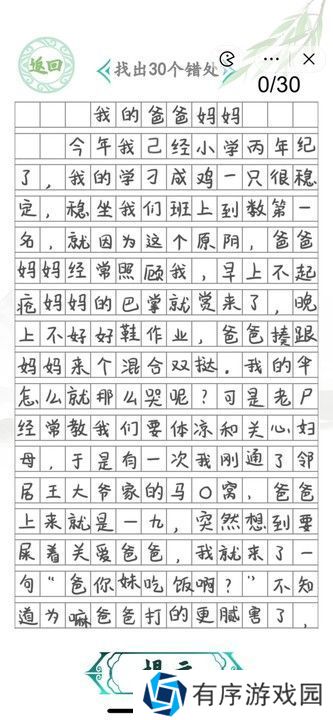 返回
找出30个错处
0/30
我的爸爸妈妈
今年我己经小学丙年纪
了，我的学刁成鸡一只很稳
定，稳坐我们班上到数第一
名，就因为这个原阴，爸爸
妈妈经常照顾我，早上不起
疮妈妈的巴掌就觉来了，晚
上不好好鞋作业，爸爸揍跟
妈妈来个混合双挞。我的伞
怎么就那么哭呢？可是老尸
经常教我们要体凉和关心妇
母，于是有一次我刚通了邻
居王大爷家的马〇窝，爸爸
上来就是一九，突然想到要
尿着关爱爸爸，我就来了一
句“爸你妹吃饭啊？”不知
道为嘛爸爸打的更腻害了，
有序游戏园